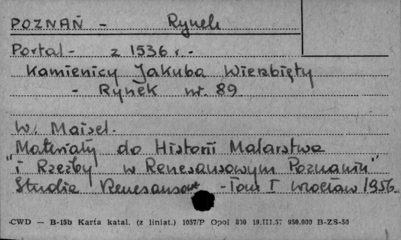 POZNAŃ - Rynek
Portal - z 1536 r. -
Kamienicy Jakuba Wierzbięty
- Rynek nr. 89
W. Maisel.
"Materiały do Historii Malarstwa
i Rzeźby w Renesansowym Poznaniu"
Studia Renesansowe - Tom I Wrocław 1956.
CWD — B-15b Karta katal. (z liniat.) 1057/P Opol 830 19.III.57 950.000 B-ZS-55